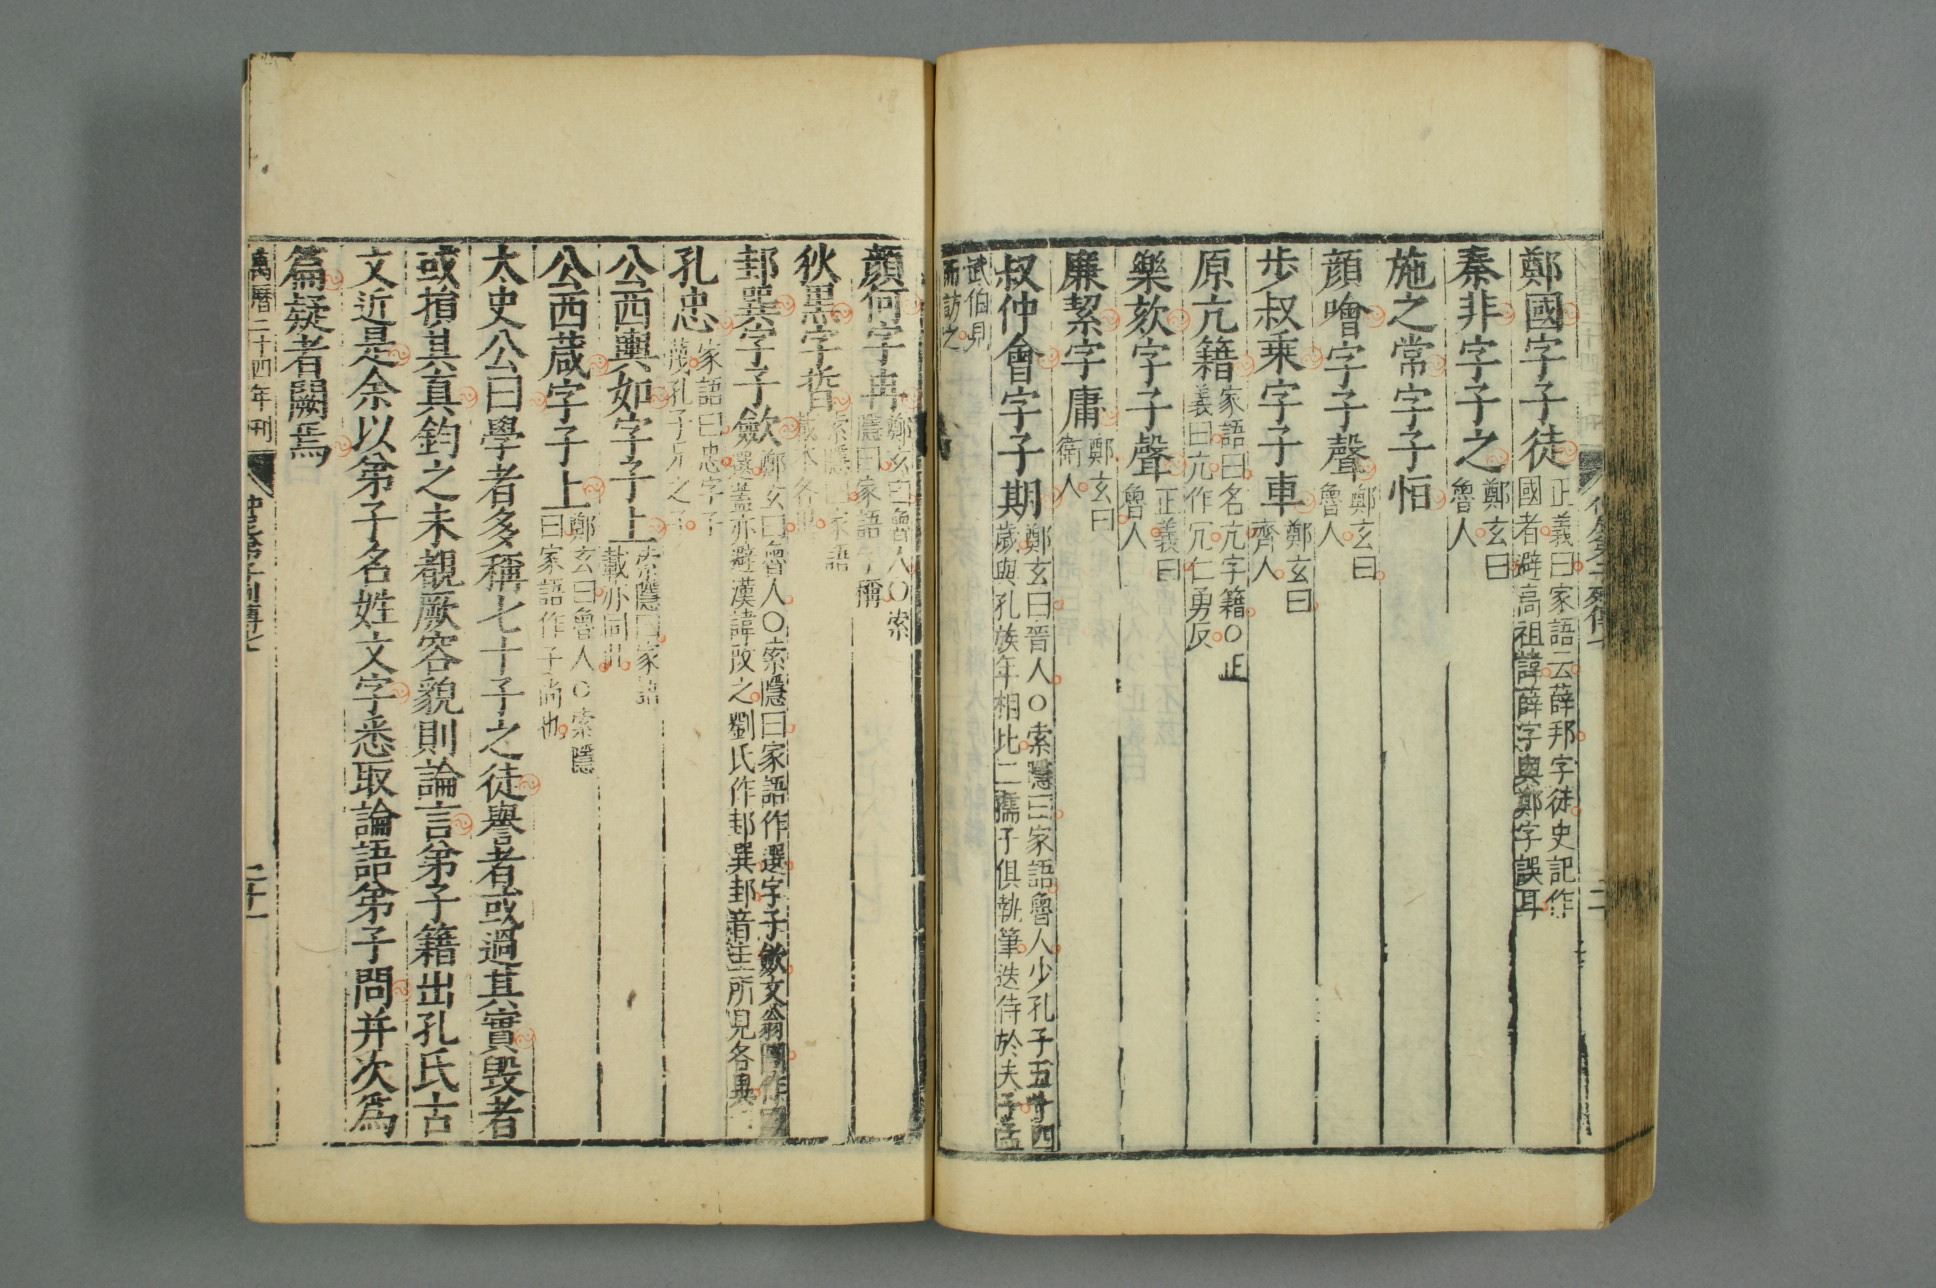 鄭國字子徒正義曰家語云薛邦字徒史記作國者避高祖諱薛字與鄭字誤耳
秦非字子之鄭玄曰魯人
施之常字子恒
顔噲字子聲鄭玄曰魯人
步叔乗字子車鄭玄曰齊人
原亢籍家語曰名亢字籍○正義曰亢作冗仁勇反
樂欬字子聲正義曰魯人
廉絜字庸鄭玄曰衛人
叔仲會字子期鄭玄曰晉人○索隱曰家語魯人少孔子五十四歲與孔族年相比二孺子俱執筆迭侍於夫子孟
武伯見而訪之
顔何字冉鄭玄曰魯人○索隱曰家語字稱
狄黒字晳索隱家語
邽巽字子歛鄭玄曰魯人○索隱曰家語作選字子歛文翁圖作選蓋亦避漢諱改之劉氏作邽巽邽音圭所見各異
孔忠家語曰忠字子蔑孔子兄之子
公西輿如字子上索隱曰家語載亦同此
公西蒧字子上鄭玄曰魯人○索隱曰家語作子尚也
太史公曰學者多稱七十子之徒譽者或過其實毀者
或損其真鈞之未覩厥容貌則論言弟子籍出孔氏古
文近是余以弟子名姓文字悉取論語弟子問并次爲
篇疑者闕焉
萬曆二十四年刊
仲尼弟子列傳七
二十一